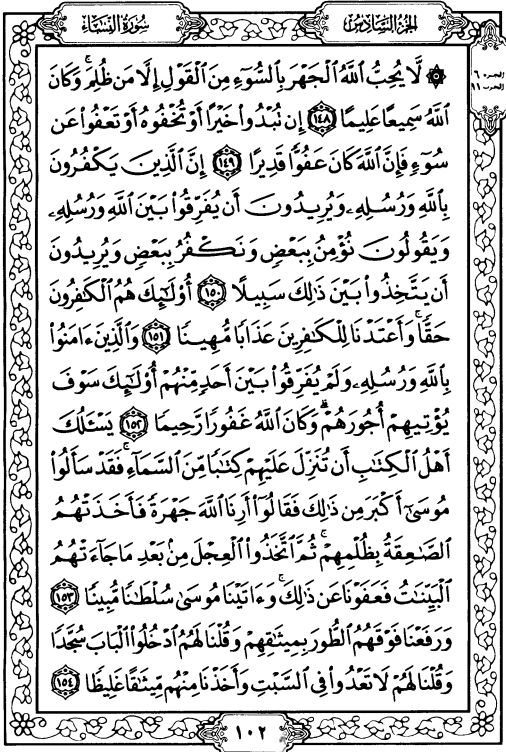 سُورَةُ النِّسَاءِ
الجُزْءُ السَّادِسُ
الجزء ٦
الحزب ١١
۞ لَّا يُحِبُّ ٱللَّهُ ٱلْجَهْرَ بِٱلسُّوٓءِ مِنَ ٱلْقَوْلِ إِلَّا مَن ظُلِمَ ۚ وَكَانَ
ٱللَّهُ سَمِيعًا عَلِيمًا ﴿١٤٨﴾ إِن تُبْدُوا۟ خَيْرًا أَوْ تُخْفُوهُ أَوْ تَعْفُوا۟ عَن
سُوٓءٍ فَإِنَّ ٱللَّهَ كَانَ عَفُوًّا قَدِيرًا ﴿١٤٩﴾ إِنَّ ٱلَّذِينَ يَكْفُرُونَ
بِٱللَّهِ وَرُسُلِهِۦ وَيُرِيدُونَ أَن يُفَرِّقُوا۟ بَيْنَ ٱللَّهِ وَرُسُلِهِۦ
وَيَقُولُونَ نُؤْمِنُ بِبَعْضٍ وَنَكْفُرُ بِبَعْضٍ وَيُرِيدُونَ
أَن يَتَّخِذُوا۟ بَيْنَ ذَٰلِكَ سَبِيلًا ﴿١٥٠﴾ أُو۟لَٰٓئِكَ هُمُ ٱلْكَٰفِرُونَ
حَقًّا ۚ وَأَعْتَدْنَا لِلْكَٰفِرِينَ عَذَابًا مُّهِينًا ﴿١٥١﴾ وَٱلَّذِينَ ءَامَنُوا۟
بِٱللَّهِ وَرُسُلِهِۦ وَلَمْ يُفَرِّقُوا۟ بَيْنَ أَحَدٍ مِّنْهُمْ أُو۟لَٰٓئِكَ سَوْفَ
يُؤْتِيهِمْ أُجُورَهُمْ ۗ وَكَانَ ٱللَّهُ غَفُورًا رَّحِيمًا ﴿١٥٢﴾ يَسْـَٔلُكَ
أَهْلُ ٱلْكِتَٰبِ أَن تُنَزِّلَ عَلَيْهِمْ كِتَٰبًا مِّنَ ٱلسَّمَآءِ ۚ فَقَدْ سَأَلُوا۟
مُوسَىٰٓ أَكْبَرَ مِن ذَٰلِكَ فَقَالُوٓا۟ أَرِنَا ٱللَّهَ جَهْرَةً فَأَخَذَتْهُمُ
ٱلصَّٰعِقَةُ بِظُلْمِهِمْ ۚ ثُمَّ ٱتَّخَذُوا۟ ٱلْعِجْلَ مِنۢ بَعْدِ مَا جَآءَتْهُمُ
ٱلْبَيِّنَٰتُ فَعَفَوْنَا عَن ذَٰلِكَ ۚ وَءَاتَيْنَا مُوسَىٰ سُلْطَٰنًا مُّبِينًا ﴿١٥٣﴾
وَرَفَعْنَا فَوْقَهُمُ ٱلطُّورَ بِمِيثَٰقِهِمْ وَقُلْنَا لَهُمُ ٱدْخُلُوا۟ ٱلْبَابَ سُجَّدًا
وَقُلْنَا لَهُمْ لَا تَعْدُوا۟ فِى ٱلسَّبْتِ وَأَخَذْنَا مِنْهُم مِّيثَٰقًا غَلِيظًا ﴿١٥٤﴾
١٠٢